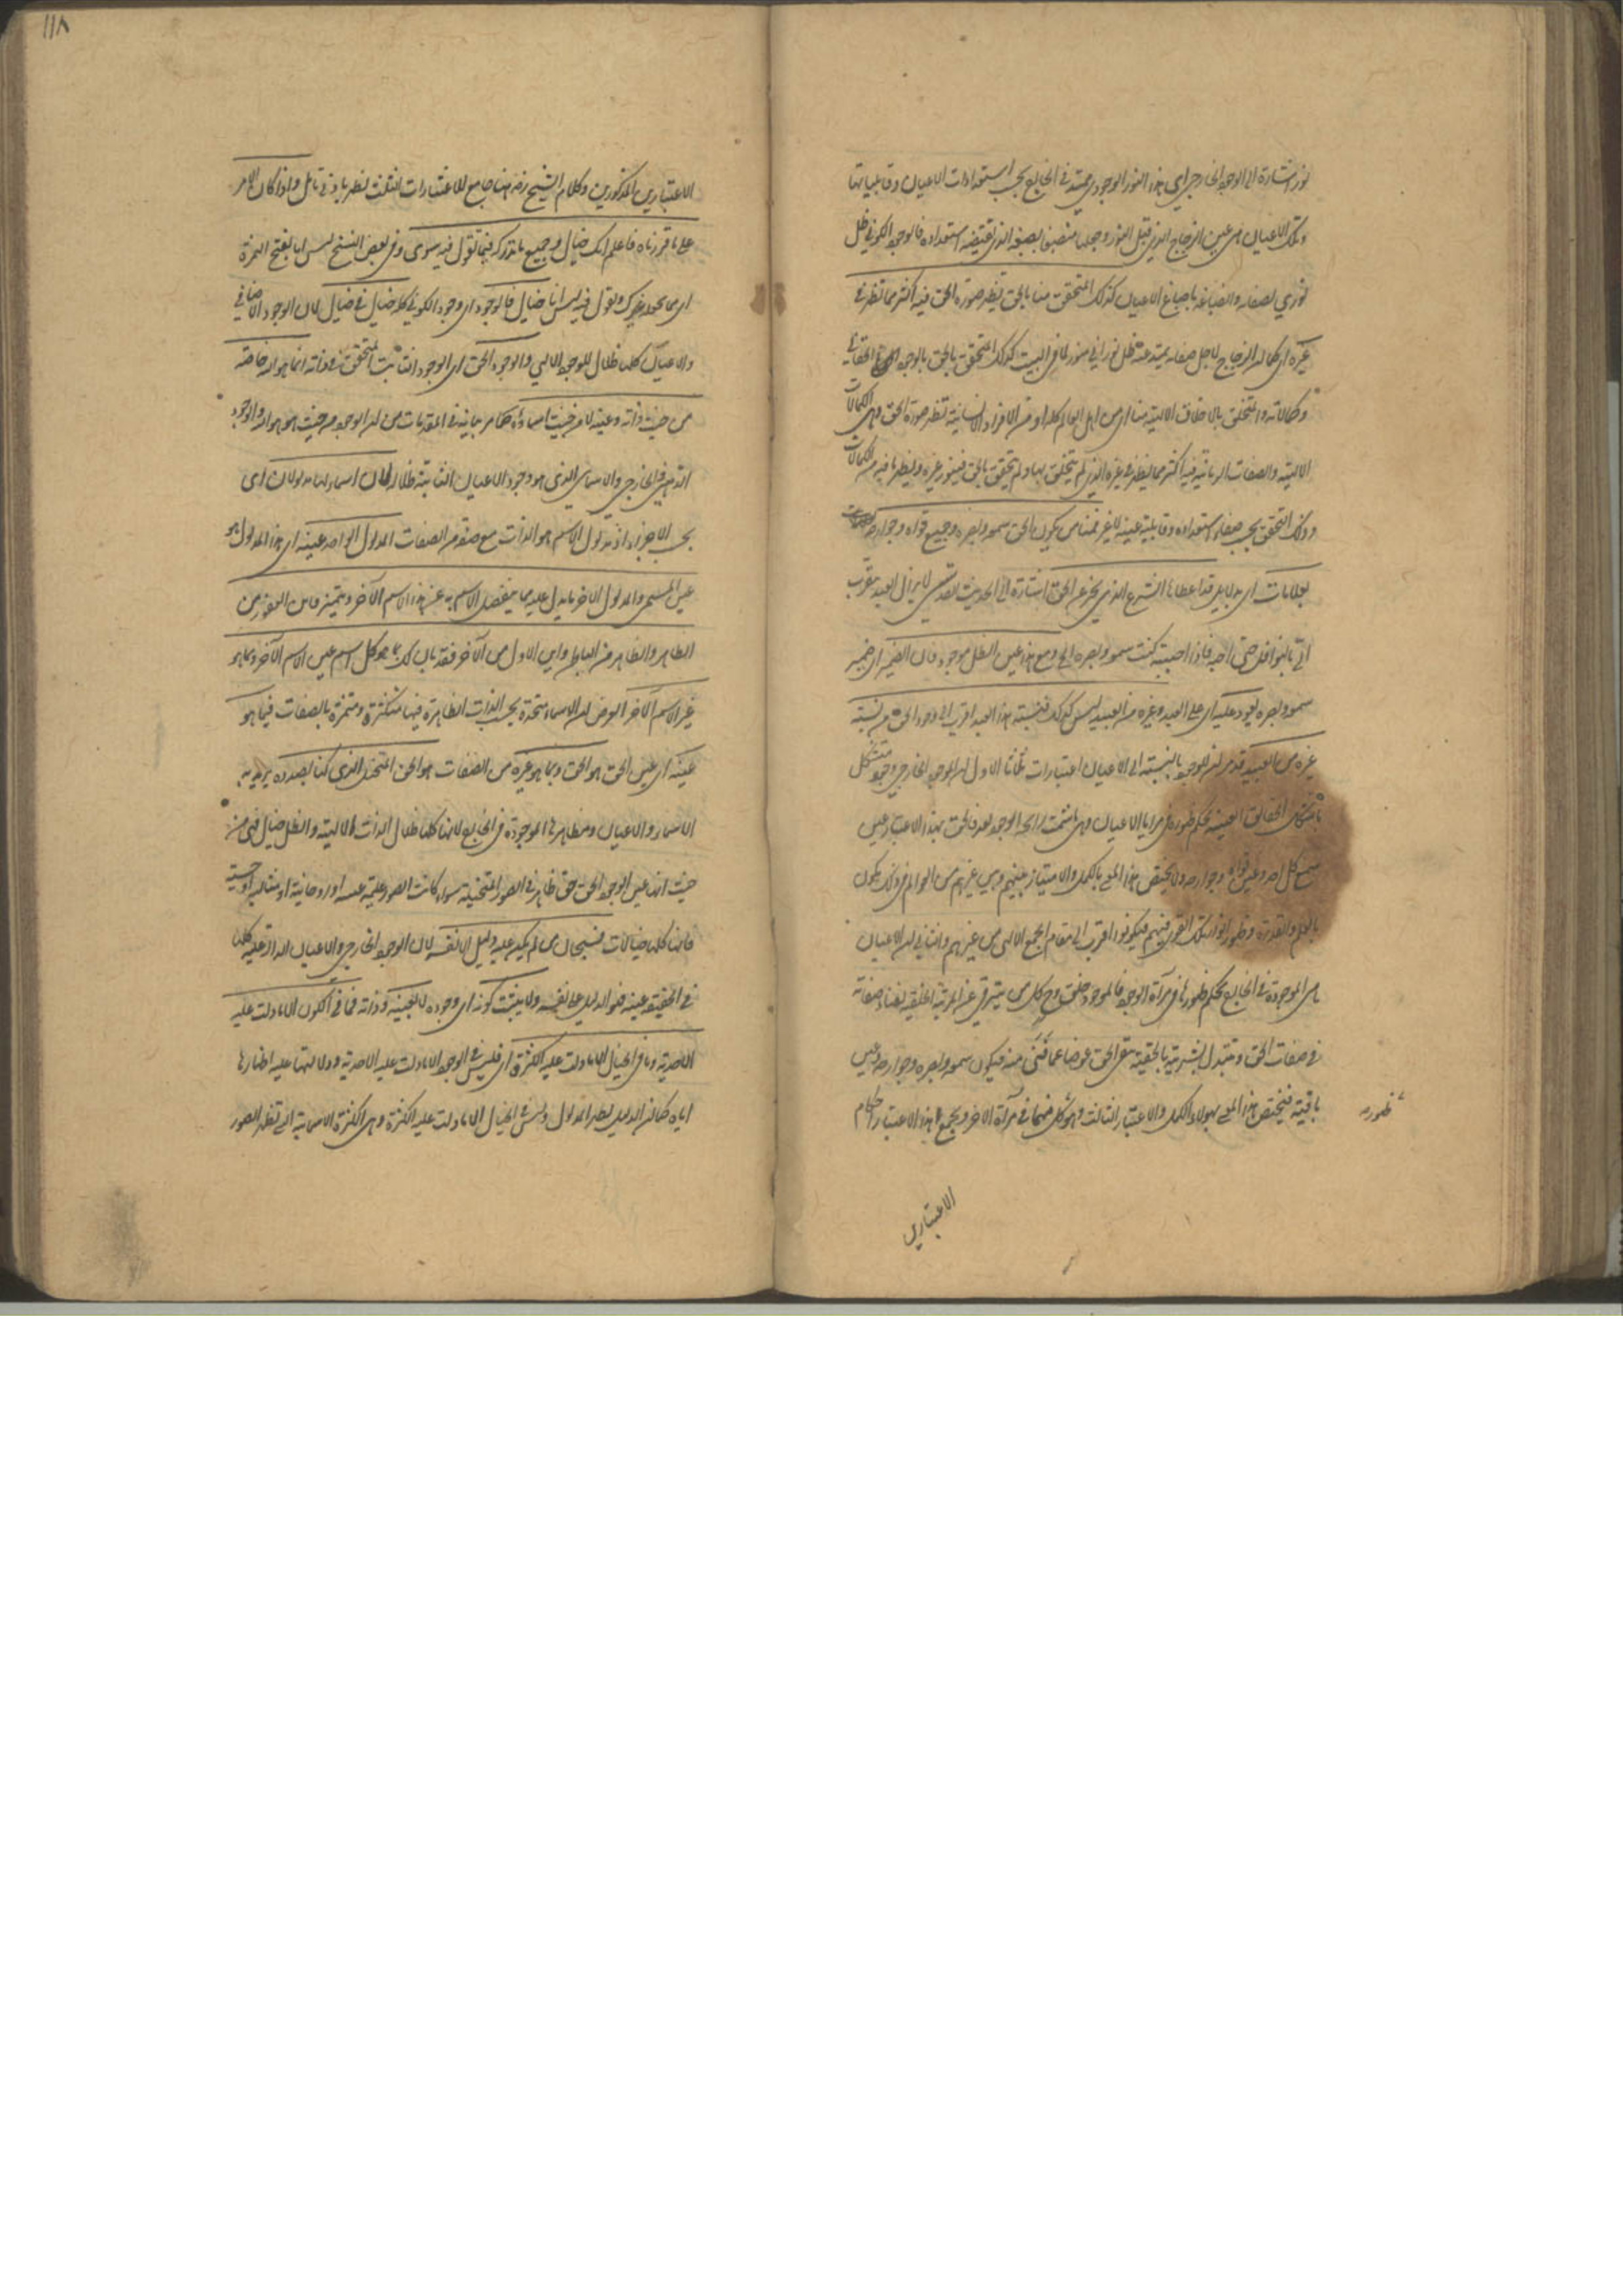 ١١٨
نور اشارة الى الوجود الخارجي اي هذا النور الوجودي ممتد في الخارج بحسب استعدادات الاعيان وقابلياتها
وتلك الاعيان هي عين الزجاج الذي قبل النور وجعله منصبغا بصبغه الذي يقتضيه استعداده فالوجود الكوني ظل
نوري لصفائه وانصباغه باصباغ الاعيان كذلك المتحقق منا بالحق تظهر صورة الحق فيه اكثر مما تظهر في
غيره اي كما ان الزجاج لاجل صفائه يمتد عنه ظل نوراني منور لما في البيت كذلك المتحقق بالحق بالوجود
وكمالاته والمتخلق بالاخلاق الالهية منا اي من اهل العالم كله او من الافراد الانسانية تظهر صورة الحق وهي الكمالات
الالهية والصفات الربانية فيه اكثر مما يظهر في غيره الذي لم يتخلق بها ولم يتحقق بالحق فينور غيره ويظهر ما فيه من الكمالات
وذلك التحقق بحسب صفاء استعداده وقابلية عينه لا غير فمنا من يكون الحق سمعه وبصره وجميع قواه وجوارحه
بعلامات اي بدلائل قد اعطاها الشرع الذي يخبر عن الحق اشارة الى الحديث القدسي لا يزال العبد يتقرب
الي بالنوافل حتى احبه فاذا احببته كنت سمعه وبصره الخ ومع هذا عين الظل موجود فان الضمير اي ضمير
سمعه وبصره يعود عليه اي على العبد وغيره من العبيد ليس كذلك فنسبة هذا العبد اقرب الى وجود الحق من نسبة
غيره من العبيد قد مر ان للوجود بالنسبة الى الاعيان اعتبارات ثلاثا الاول ان الموجود الخارجي وجود متشكل
باشكال الحقائق العينية بحكم ظهوره في مرايا الاعيان وهي ما شمت رائحة الوجود بعد فالحق بهذا الاعتبار عين
سمع كل احد وعين قواه وجوارحه ولا يختص هذا المعنى بالكمل والامتياز بينهم وبين غيرهم من العوالم في ذلك يكون
بالعلم والقدرة وظهور انوار تلك القوى فيهم فيكونوا اقرب الى مقام الجمع الالهي من غيرهم والثاني ان الاعيان
هي الموجودة في الخارج بحكم ظهورها في مرآة الوجود فالموجود خلق وح كل من يترقى عن المرتبة الخلقية بفناء صفاته
في صفات الحق وتتبدل البشرية بالحقية يبقى الحق عوضا عما فنى منه فيكون سمعه وبصره وجوارحه وعين
باقية فيختص هذا المعنى بهؤلاء الكمل والاعتبار الثالث وهو كل منهما في مرآة الاخر ويجمع هذا الاعتبار احكام
ظهوره
الاعتبارين
الاعتبارين المذكورين وكلام الشيخ رضه هنا جامع للاعتبارات الثلث يظهر بادنى تامل واذا كان الامر
على ما قررناه فاعلم انك خيال وجميع ما تدركه فيما تقول فيه سوى وفي بعض النسخ ليس انا بفتح الهمزة
اي مما تحده غيرك وتقول فيه ليس انا خيال فالوجود اي وجود الكوني كله خيال في خيال لان الوجود الاضافي
والاعيان كلها ظلال للوجود الالهي والوجود الحق اي الوجود الثابت المتحقق في ذاته انما هو الله خاصة
من حيث ذاته وعينه لا من حيث اسمائه كما مر بيانه في المقدمات من ان الوجود من حيث هو هو الله والوجود
الذهني والخارجي والاسمائي الذي هو وجود الاعيان الثابتة ظلاله لان اسماءه لها مدلولان اي
بحسب الاجزاء اذ مدلول الاسم هو الذات مع صفة من الصفات المدلول الواحد عينه اي هذا المدلول هو
عين المسمى والمدلول الآخر ما يدل عليه مما ينفصل الاسم به عن هذا الاسم الآخر ويتميز فاين الغفور من
الظاهر والظاهر من الباطن واين الاول من الآخر فقد بان لك بما هو كل اسم عين الاسم الآخر وبما هو
غير الاسم الآخر الغرض ان الاسماء متحدة بحسب الذات الظاهرة فيها متكثرة ومتميزة بالصفات فبما هو
عينه اي عين الحق هو الحق وبما هو غيره من الصفات هو الحق المتخيل الذي كنا بصدده يريد به
الاسماء والاعيان ومظاهرها الموجودة في الخارج لانها كلها ظلال الذات الالهية والظل خيال فهي من
حيث انها عين الوجود الحق حق ظاهر في الصور المتخيلة سواء كانت الصور علمية عينية او روحانية او مثالية او حسية
فانها كلها خيالات فسبحان من لم يكن عليه دليل الا نفسه لان الوجود الخارجي والاعيان الدالة عليه كلها
في الحقيقة عينه فهو الدليل على نفسه ولا يثبت كونه اي وجوده الا بعينه وذاته فما في الكون الا ما دلت عليه
الاحدية وما في الخيال الا ما دلت عليه الكثرة اي فليس في الوجود الا ما دلت عليه الاحدية ودلالتها عليه اظهارها
اياه كما ان الدليل يظهر المدلول وليس في الخيال الا ما دلت عليه الكثرة وهي الكثرة الاسمائية التي تظهر الصور